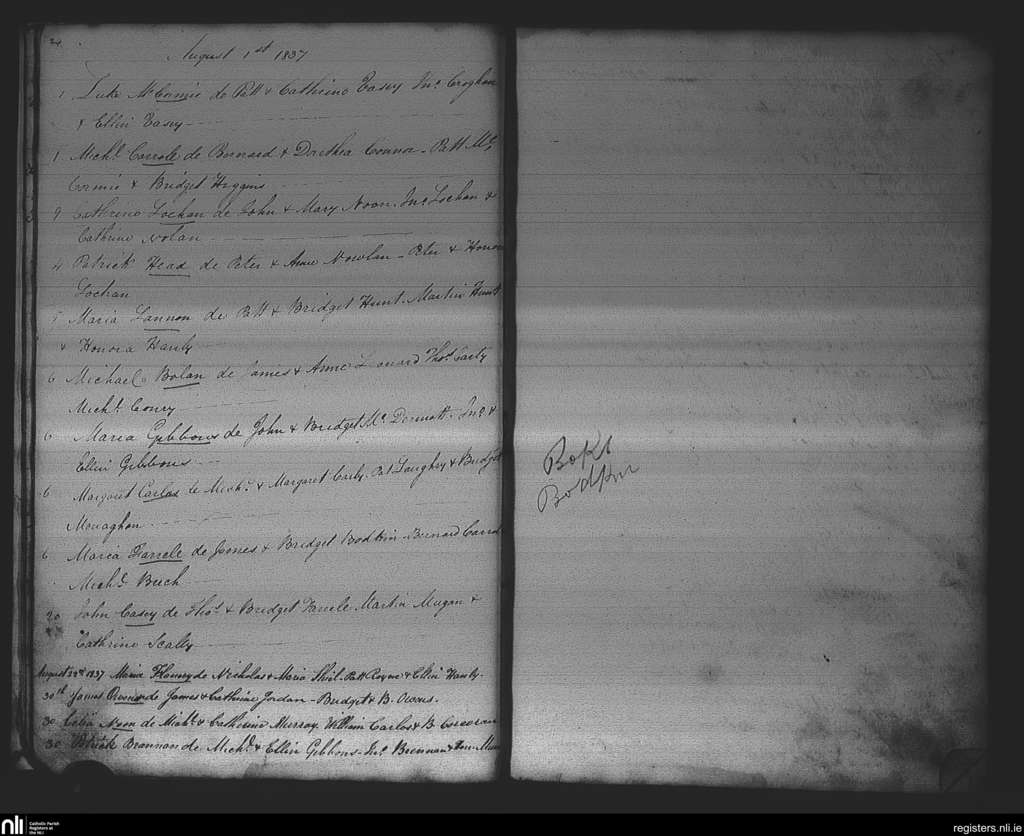 August 1st 1837
1 Luke McCormic de Patt & Cathrine Casey Jno. Croghan
& Ellin Casey
1 Michl. Carrole de Bernard & Dorthea Connor - Patt Mc
Cormic & Bridget Higgins
9 Cathrine Lochan de John & Mary Noon. Jno. Lochan &
Cathrine Nolan
4 Patrick Head de Peter & Anne Nowlan - Peter & Honora
Lochan
5 Maria Lannon de Patt & Bridget Hunt. Martin Hunt
& Honora Hanly
6 Michael Bolan de James & Anne Leonard Thos. Carty
Michl. Conry
6 Maria Gibbons de John & Bridget Mc Dermott. Jno. &
Ellin Gibbons
6 Margaret Carlos de Michl. & Margaret Carty. Pat Loughry & Bridget
Monaghan
6 Maria Farrele de James & Bridget Bodkin - Bernard Carrol
Michl. Buch
20 John Casey de Thos. & Bridget Farrele. Martin Mugan &
Cathrine Scally
August 1837 Maria de Nicholas & Maria Patt Coyne & Ellin Hanly.
30th James de James & Cathrine Jordan - Bridget & B. Owens.
30 Celia Noon de Michl. & Catherine Murray. William Carlos & B Corcoran
30 Patrick Brannan de Michl. & Ellin Gibbons - Jno. Brennan &
Bodkin
nli
Catholic Parish
Registers at
the NLI
registers.nli.ie